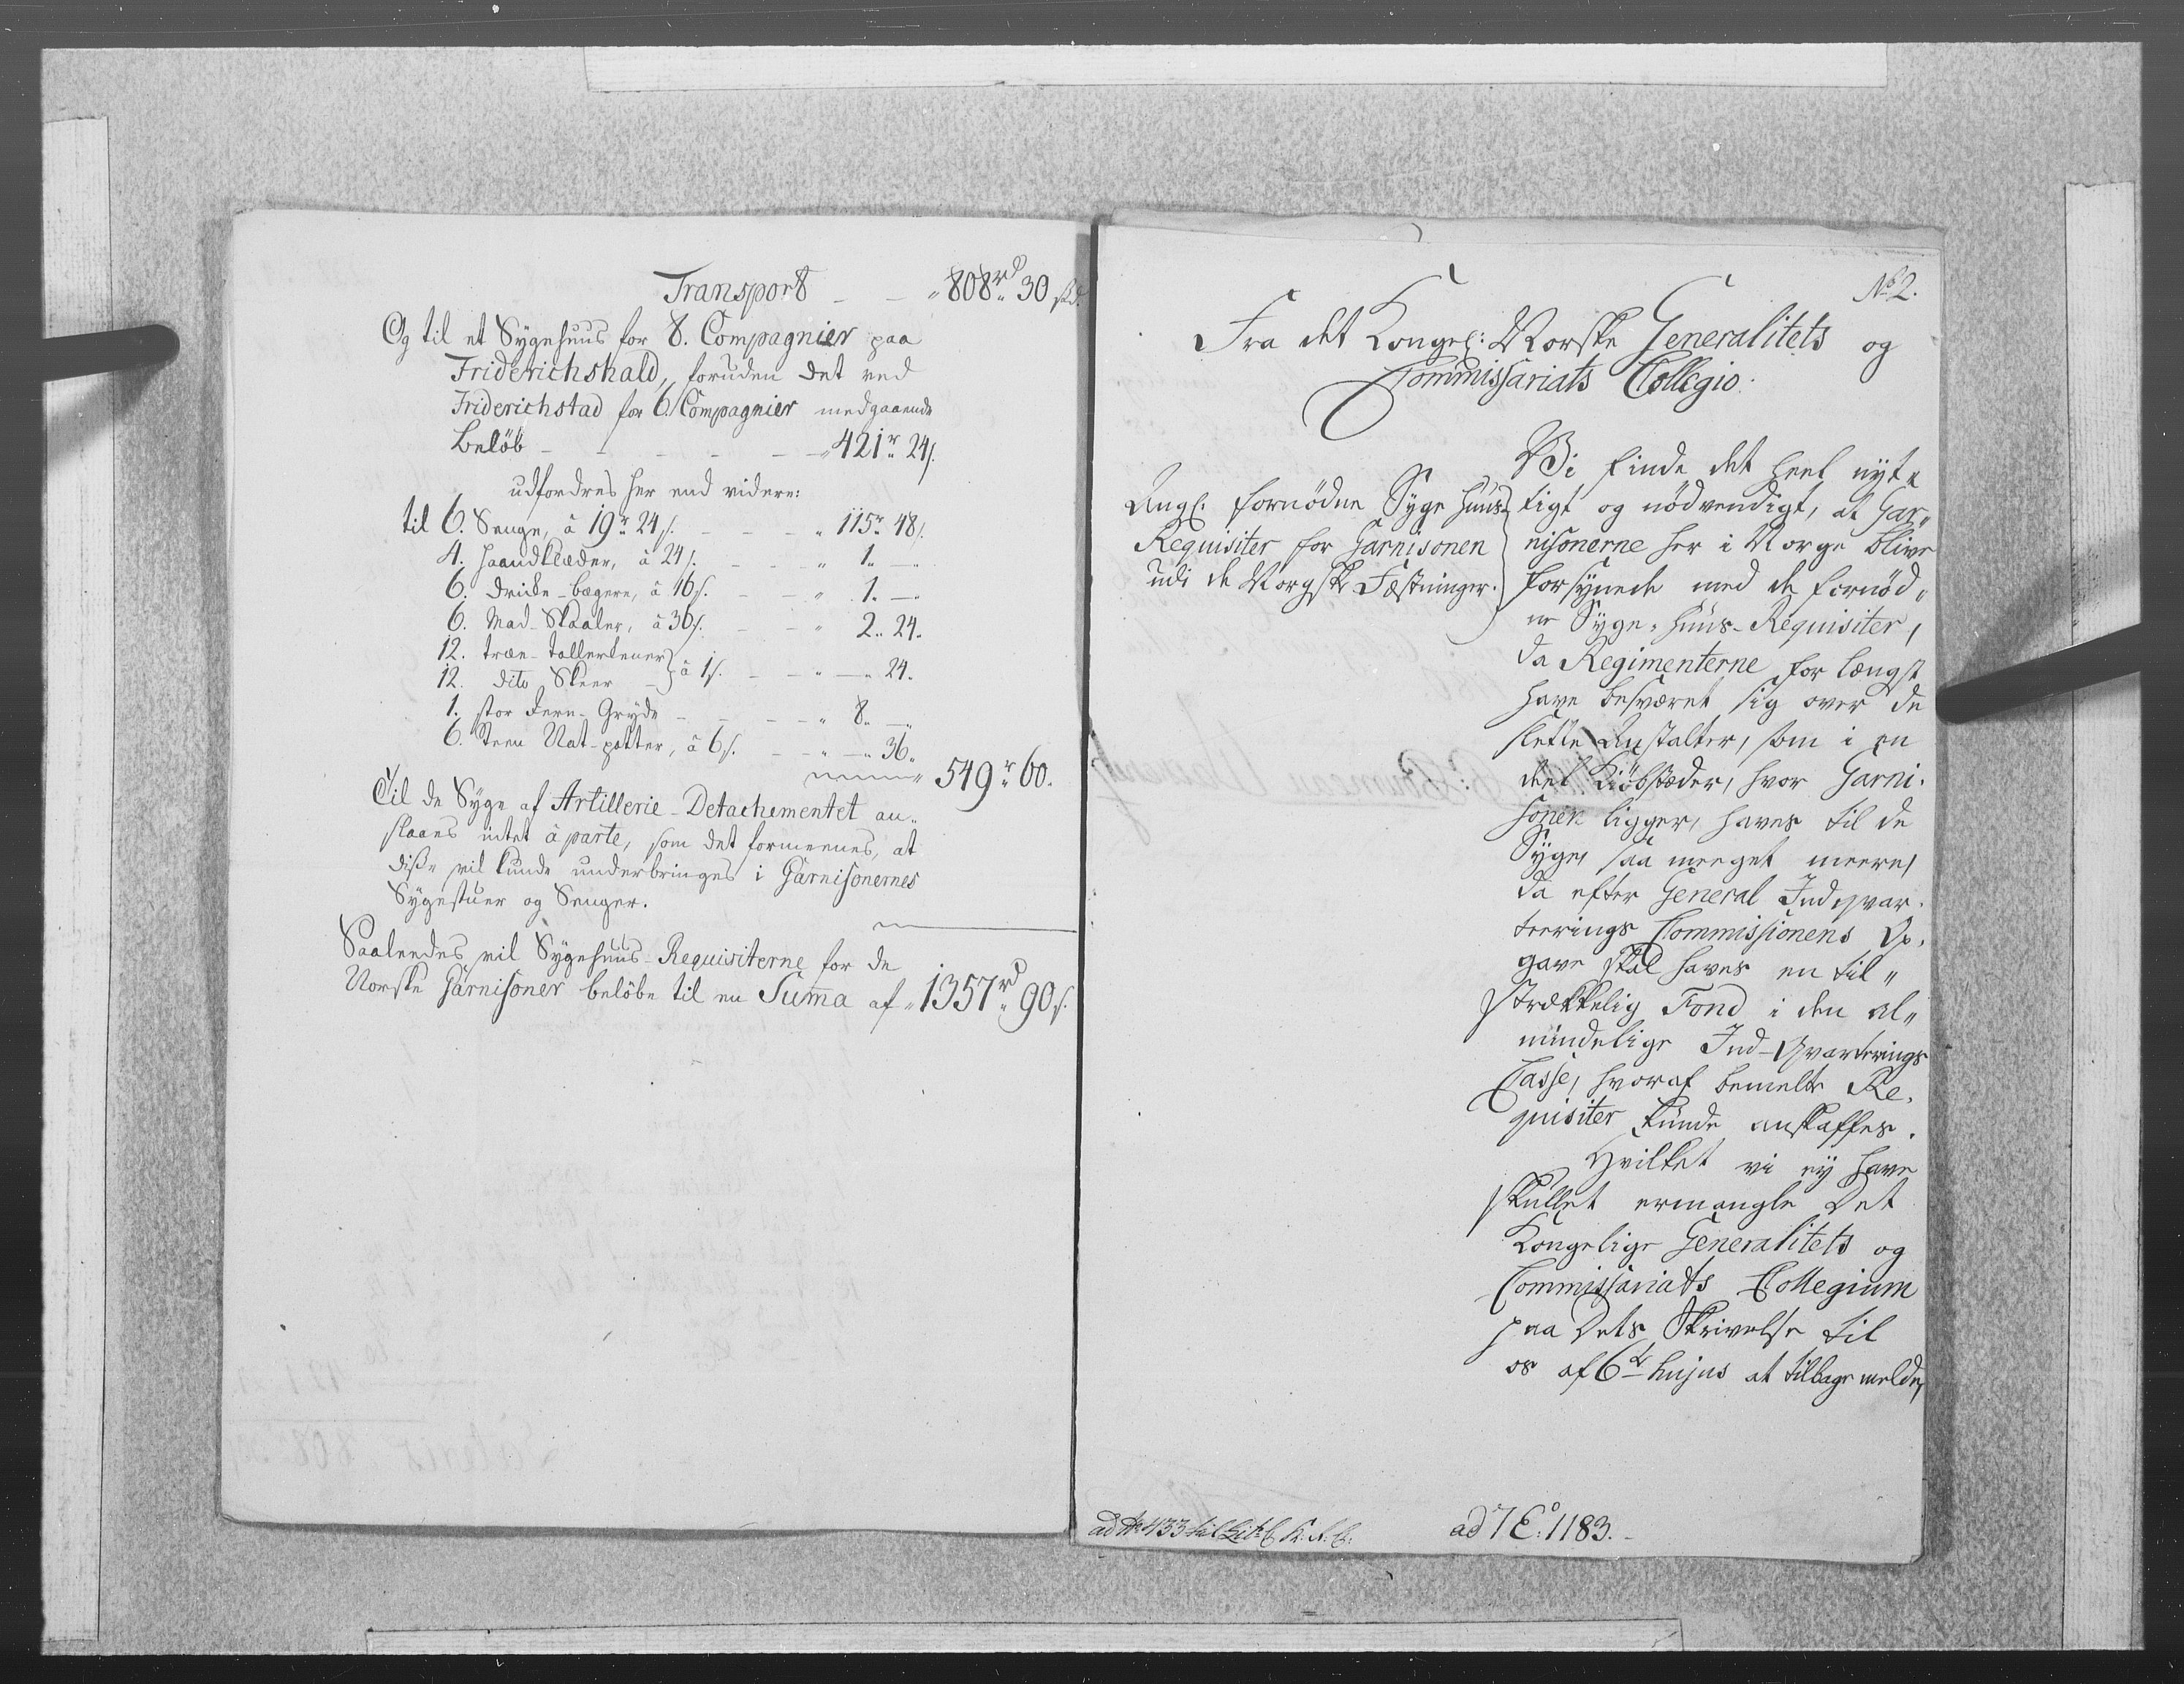 Transport - - " 808 rd " 30 sk.
Og til et Sygehuus for 8. Compagnier paa
Friderichshald, foruden det ved
Friderichstad for 6. Compagnier medgaaende
Beløb - - - - - " 421 r " 24 s.
udfordres her end videre:
til 6. Senge, à 19 r 24 s. - - - " 115 r " 48 s.
4. Haandklæder, à 24 s. - - - " 1 " —
6. Drikke-bægere, à 16 s. - - " 1 " —
6. Mad-Skaaler, à 36 s. - - " 2 " 24 "
12. træe-tallerkener } à 1 s. - - " — " 24 "
12. dito Skeer
1. stor Jern-Gryde - - - - " 8 " — "
6. Steen Nat-potter, à 6 s. - - " — " 36 "
" 549 r " 60.
Til de Syge af Artillerie-Detachementet an"
slaaes intet à parte, som det formeenes, at
disse vil kunde underbringes i Garnisonernes
Sygestuer og Senger.
Saaleedes vil Sygehuus-Requisiterne for de
Norske Garnisoner beløbe til en Suma af " 1357 rd " 90 s.
No 2.
Fra det Kongel: Norske Generalitets og
Commissariats Collegio.
Angl. fornødne Syge Huus-
Requisiter for Garnisonen
udi de Norgske Fæstninger.
Vi finde det heel nyt"
tigt og nødvendigt, at Gar"
nisonerne her i Norge blive
forsynede med de fornød"
ne Syge-Huus-Requisiter,
da Regimenterne for længst
have besværet sig over de
slette Anstalter, som i en
deel Kiøbstæder, hvor Garni-
sonen ligger, haves til de
Syge, saa meeget meere,
da efter General Indqvar-
teerings Commissionens Op-
gave skal haves en til"
strækkelig Fond i den al"
mindelige Ind-Qvarterings
Casse, hvoraf bemelte Re-
quisiter kunde anskaffes.
Hvilket vi ey have
skullet ermangle Det
Kongelige Generalitets og
Commissariats Collegium
paa Dets Skrivelse til
os af 6te hujus at tilbage melde,
ad No 433 til Lit: C. K: A: C:
ad 7 C: 1183.